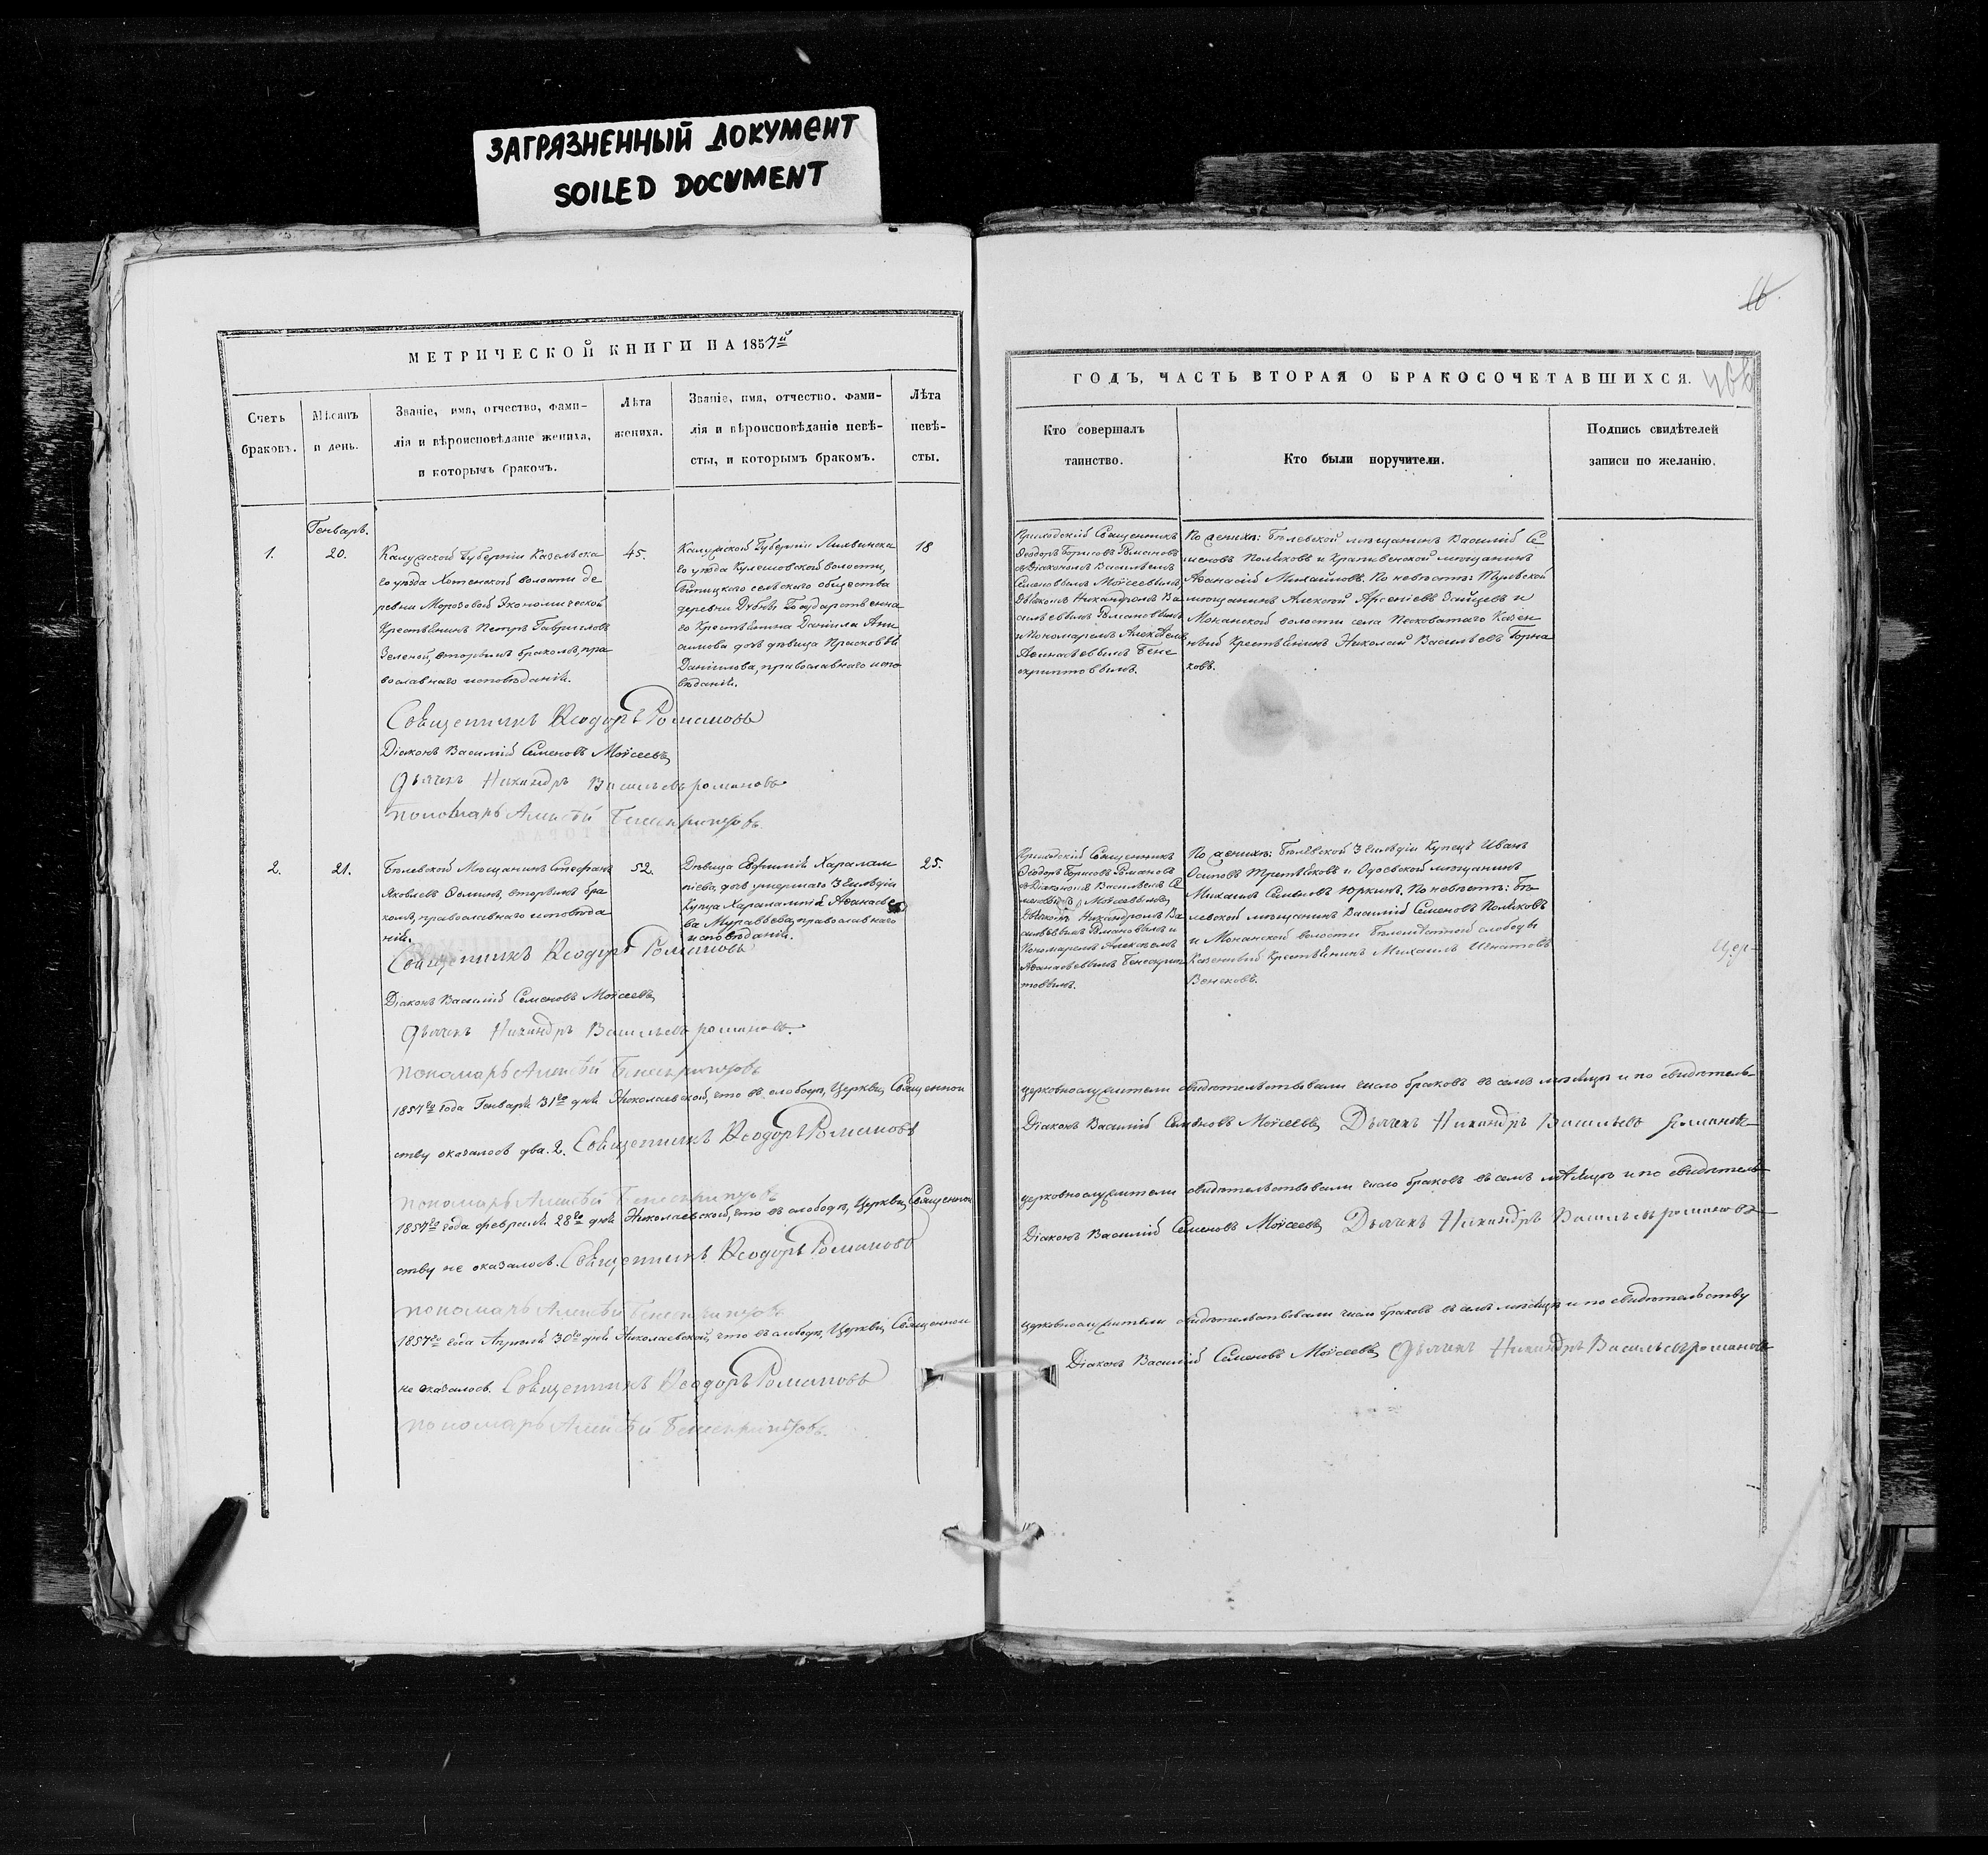 ЗАГРЯЗНЕННЫЙ ДОКУМЕНТ
SOILED DOCUMENT
МЕТРИЧЕСКОЙ КНИГИ НА 1857й
Счетъ
браковъ.
Мѣсяцъ
и день.
Званіе, имя, отчество, фами-
лія и вѣроисповѣданіе жениха,
и которымъ бракомъ.
Лѣта
жениха.
Званіе, имя, отчество, фами-
лія и вѣроисповѣданіе невѣ-
сты, и которымъ бракомъ.
Лѣта
невѣ-
сты.
Генварь.
1.
20.
Калужской Губерніи Козельска
го уѣзда Хотенской волости де
ревни Морозовой Экономической
Крестьянинъ Петръ Гавриловъ
Зеленой, вторымъ бракомъ, пра
вославнаго исповѣданія.
45.
Калужской Губерніи Лихвинска
го уѣзда Кулешовской волости,
сельскаго общества
деревни Государственна
го Крестьянина Даніила Ани
симова дочь дѣвица Прасковья
Данiилова, православнаго испо
вѣданія.
18
Священникъ Ѳеодоръ Романовъ
Діаконъ Василій Семеновъ Моисеевъ
Дьячекъ Никандръ Васильевъ Романовъ
пономарь Алексѣй Бенескриптовъ
2.
21.
Бѣлевской Мѣщанинъ Стефанъ
Яковлевъ вторымъ бра
комъ, православнаго исповѣда
нія.
52.
Дѣвица Евфимія Харалам
піева, дочь умершаго 3 Гильдіи
Купца Харалампія Аѳанасье
ва Муравьева, православнаго
исповѣданія.
25.
Священникъ Ѳеодоръ Романовъ
Діаконъ Василій Семеновъ Моисеевъ
Дьячекъ Никандръ Васильевъ Романовъ.
пономарь Алексѣй Бенескриптовъ
1857го года Генваря 31го дня Николаевской, что въ слободѣ, Церкви, Священно
ству оказалось два. 2. Священникъ Ѳеодоръ Романовъ
пономарь Алексѣй Бенескриптовъ
1857го года февраля 28го дня Николаевской, что въ слободѣ, Церкви, Священно
ству не оказалось. Священникъ Ѳеодоръ Романовъ
пономарь Алексѣй Бенескриптовъ
1857го года Апрѣля 30го дня Николаевской, что въ слободѣ, Церкви, Священно
не оказалось. Священникъ Ѳеодоръ Романовъ
пономарь Алексѣй Бенескриптовъ.
16.
ГОДЪ, ЧАСТЬ ВТОРАЯ О БРАКОСОЧЕТАВШИХСЯ.
Кто совершалъ
таинство.
Кто были поручители.
Подпись свидѣтелей
записи по желанію.
Приходскій Священникъ
Ѳеодоръ Борисовъ Романовъ
съ Діакономъ Василіемъ
Семеновымъ Моисеевымъ,
Дьячкомъ Никандромъ Ва
сильевымъ Романовымъ
и Пономаремъ Алексѣемъ
Аѳанасьевымъ Бене
скриптовымъ.
По женихѣ: Бѣлевской мѣщанинъ Василій Се
меновъ Поляковъ и Крапивенской мѣщанинъ
Аѳанасій Михайловъ. По невѣстѣ: Тульской
мѣщанинъ Алексѣй Арсеніевъ Зайцевъ и
Монанской волости села Песковатаго Казен
ный Крестьянинъ Николай Васильевъ Горча
ковъ.
Приходскій Священникъ
Ѳеодоръ Борисовъ Романовъ
съ Діакономъ Василіемъ Се
меновымъ Моисеевымъ,
Дьячкомъ Никандромъ Ва
сильевымъ Романовымъ и
Пономаремъ Алексѣемъ
Аѳанасьевымъ Бенескрип
товымъ.
По женихѣ: Бѣлевской 3 Гильдіи Купецъ Иванъ
Осиповъ Третьяковъ и Одоевской мѣщанинъ
Михаилъ Семеновъ Юркинъ. По невѣстѣ: Бѣ
левской мѣщанинъ Василій Семеновъ Поляковъ
и Монанской волости слободы
Казенный Крестьянинъ Михаилъ Игнатовъ
церковнослужители свидѣтельствовали число браковъ въ семъ мѣсяцѣ и по свидѣтель-
Діаконъ Василій Семеновъ Моисеевъ Дьячекъ Никандръ Васильевъ Романовъ
церковнослужители свидѣтельствовали число браковъ въ семъ мѣсяцѣ и по свидѣтель-
Діаконъ Василій Семеновъ Моисеевъ Дьячекъ Никандръ Васильевъ Романовъ
церковнослужители свидѣтельствовали число браковъ въ семъ мѣсяцѣ и по свидѣтельству
Діаконъ Василій Семеновъ Моисеевъ Дьячекъ Никандръ Васильевъ Романовъ